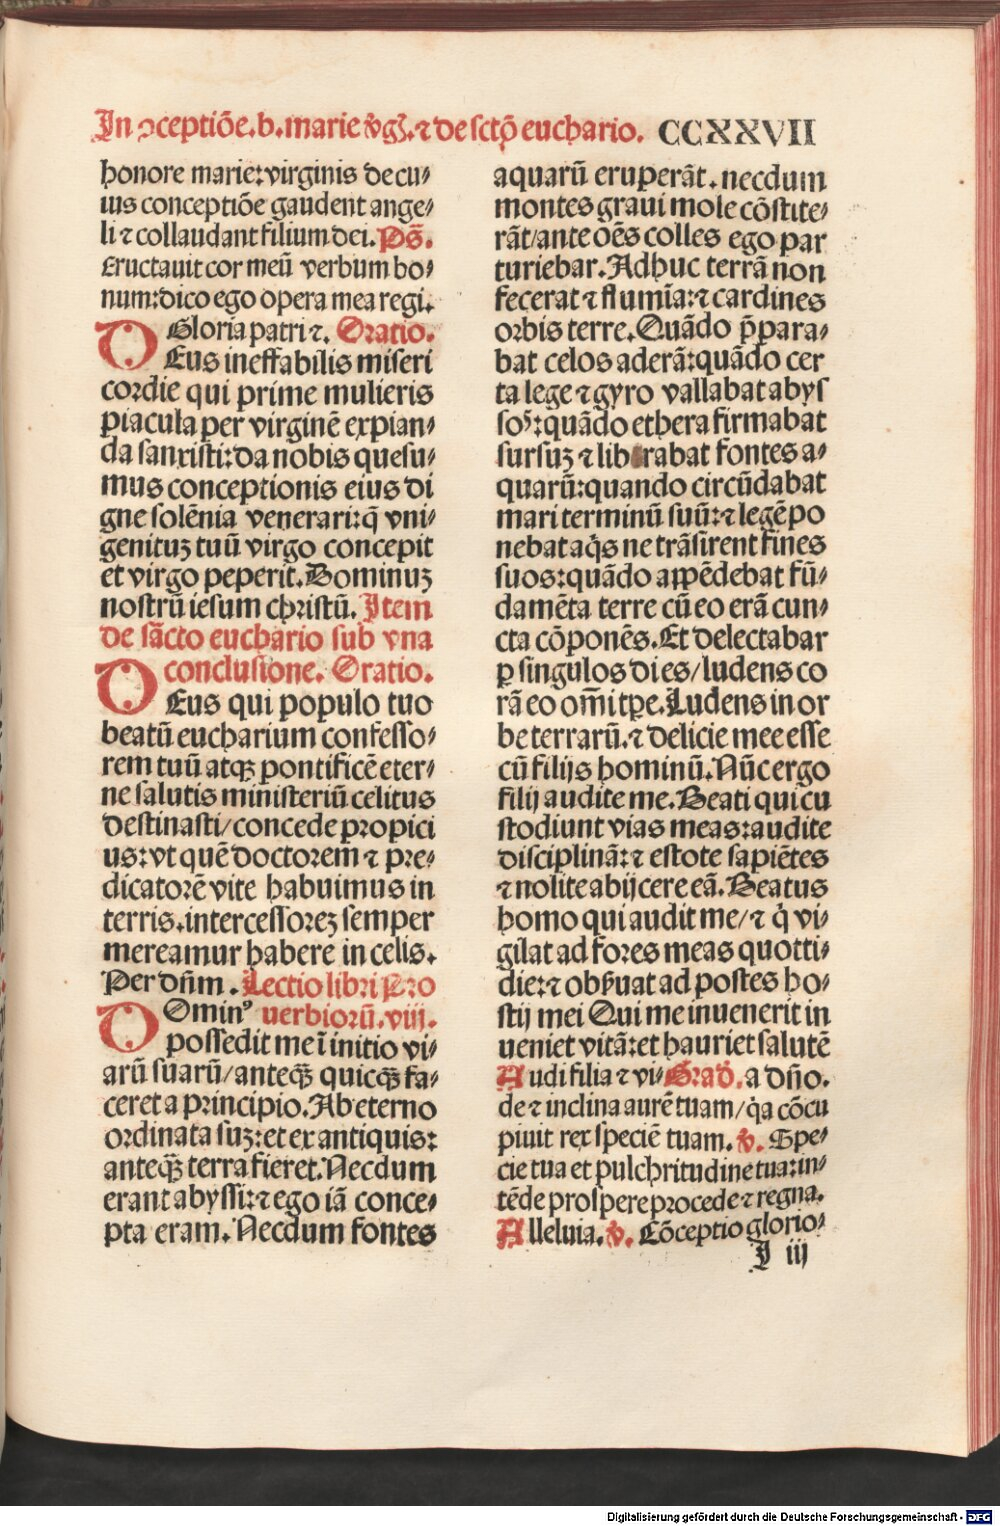 In ↄceptiõe.b.marie v̾gĩs.⁊ de sctõ euchario. CCXXVII
honore marie:virginis de cu⸗
ius conceptiõe gaudent ange⸗
li ⁊ collaudant filium dei. Ps̃.
Eructauit cor meũ verbum bo⸗
num:dico ego opera mea regi.
Gloria patri ⁊. Oratio.
DEus ineffabilis miseri
cordie qui prime mulieris
piacula per virginẽ expian⸗
da sanxisti:da nobis quesu⸗
mus conceptionis eius di
gne solẽnia venerari:q̃ vni⸗
genituȝ tuũ virgo concepit
et virgo peperit. Dominuȝ
nostrũ iesum christũ. Item
de sãcto euchario sub vna
conclusione. Oratio.
DEus qui populo tuo
beatũ eucharium confesso⸗
rem tuũ atqȝ pontificẽ eter⸗
ne salutis ministeriũ celitus
destinasti/concede propici
us:vt quẽ doctorem ⁊ pre⸗
dicatorẽ vite habuimus in
terris.intercessoreȝ semper
mereamur habere in celis.
Per dñm. Lectio libri Pro
DOminꝰ uerbiorũ.viij.
possedit me ĩ initio vi⸗
arũ suarũ/anteqȝ̃ quicqȝ̃ fa⸗
ceret a principio. Ab eterno
ordinata suȝ:et ex antiquis:
anteqȝ̃ terra fieret. Necdum
erant abyssi:⁊ ego iã conce⸗
pta eram. Necdum fontes
aquarũ eruperãt. necdum
montes graui mole cõstite⸗
rãt/ante oẽs colles ego par
turiebar. Adhuc terrã non
fecerat ⁊ flumĩa:⁊ cardines
orbis terre. Quãdo p̃para⸗
bat celos aderã:quãdo cer
ta lege ⁊ gyro vallabat abys
soꝰ:quãdo ethera firmabat
sursuȝ ⁊ librabat fontes a⸗
quarũ:quando circũdabat
mari terminũ suũ:⁊ legẽ po
nebat aq̃s ne trãsirent fines
suos:quãdo appẽdebat fũ⸗
damẽta terre cũ eo erã cun⸗
cta cõponẽs. Et delectabar
ꝑ singulos dies/ludens co
rã eo om̃i tꝑe. Ludens in or
be terrarũ.⁊ delicie mee esse
cũ filijs hominũ. Nũc ergo
filij audite me. Beati qui cu
stodiunt vias meas:audite
disciplinã:⁊ estote sapiẽtes
⁊ nolite abijcere eã. Beatus
homo qui audit me/⁊ q̇ vi⸗
gilat ad fores meas quotti⸗
die:⁊ obs̃uat ad postes ho⸗
stij mei Qui me inuenerit in
ueniet vitã:et hauriet salutẽ
Audi filia ⁊ vi⸗ Grad̾. a dño.
de ⁊ inclina aurẽ tuam/q̇a cõcu
piuit rex speciẽ tuam. v̾. Spe⸗
cie tua et pulchritudine tua:in⸗
tẽde prospere procede ⁊ regna.
Alleluia. v̾. Cõceptio glorio⸗
I iij
Digitalisierung gefördert durch die Deutsche Forschungsgemeinschaft - DFG